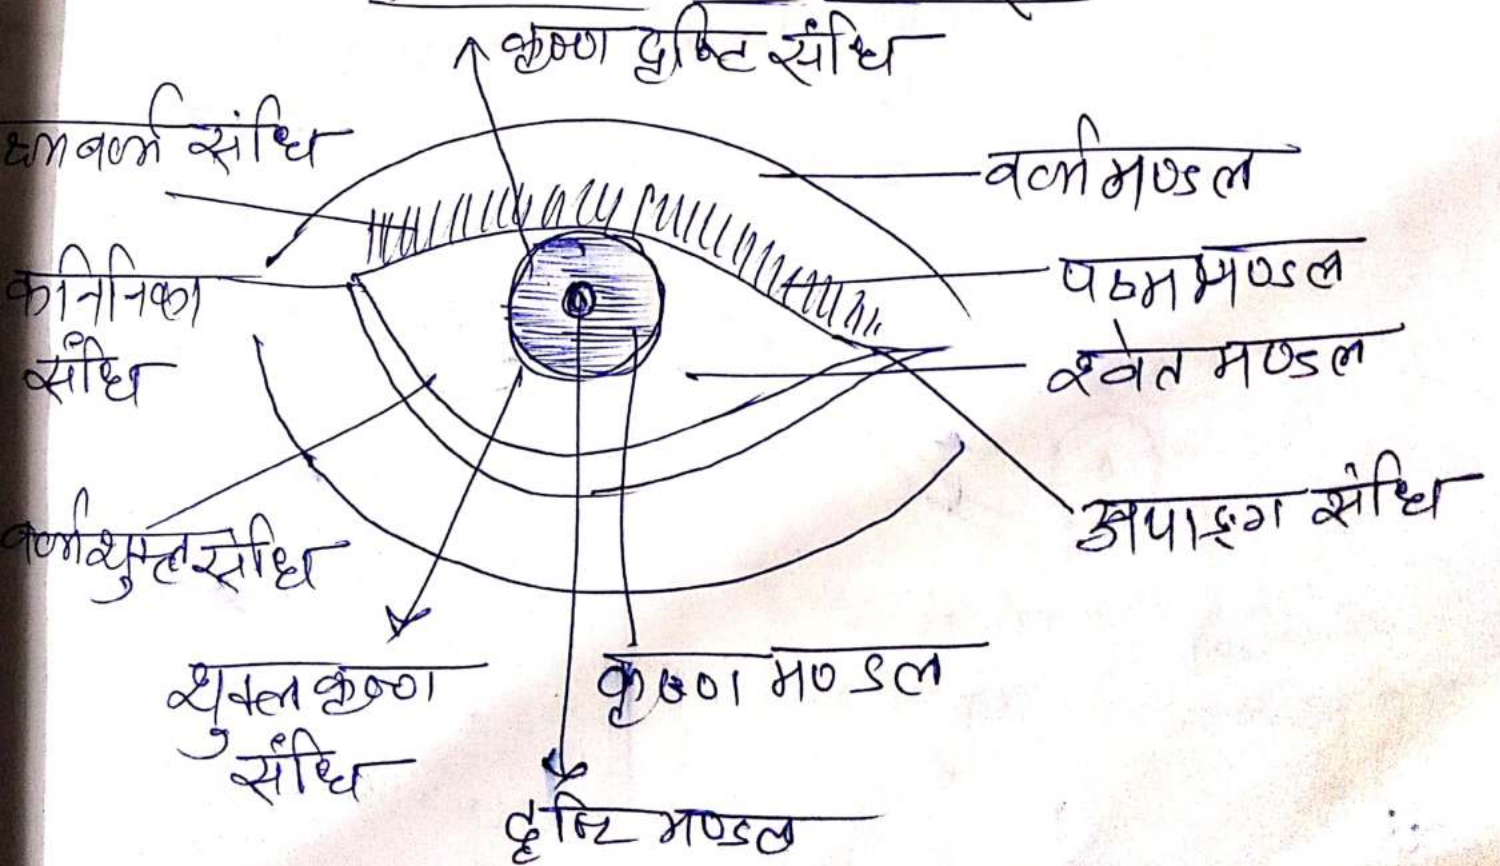 कृष्ण दृष्टि संधि
क्ष्मवर्त्म संधि
वर्त्ममण्डल
पक्ष्ममण्डल
कनिनिका
संधि
श्वेत मण्डल
अपाङ्ग संधि
वर्त्मशुक्ल संधि
शुक्ल कृष्ण
संधि
कृष्ण मण्डल
दृष्टि मण्डल